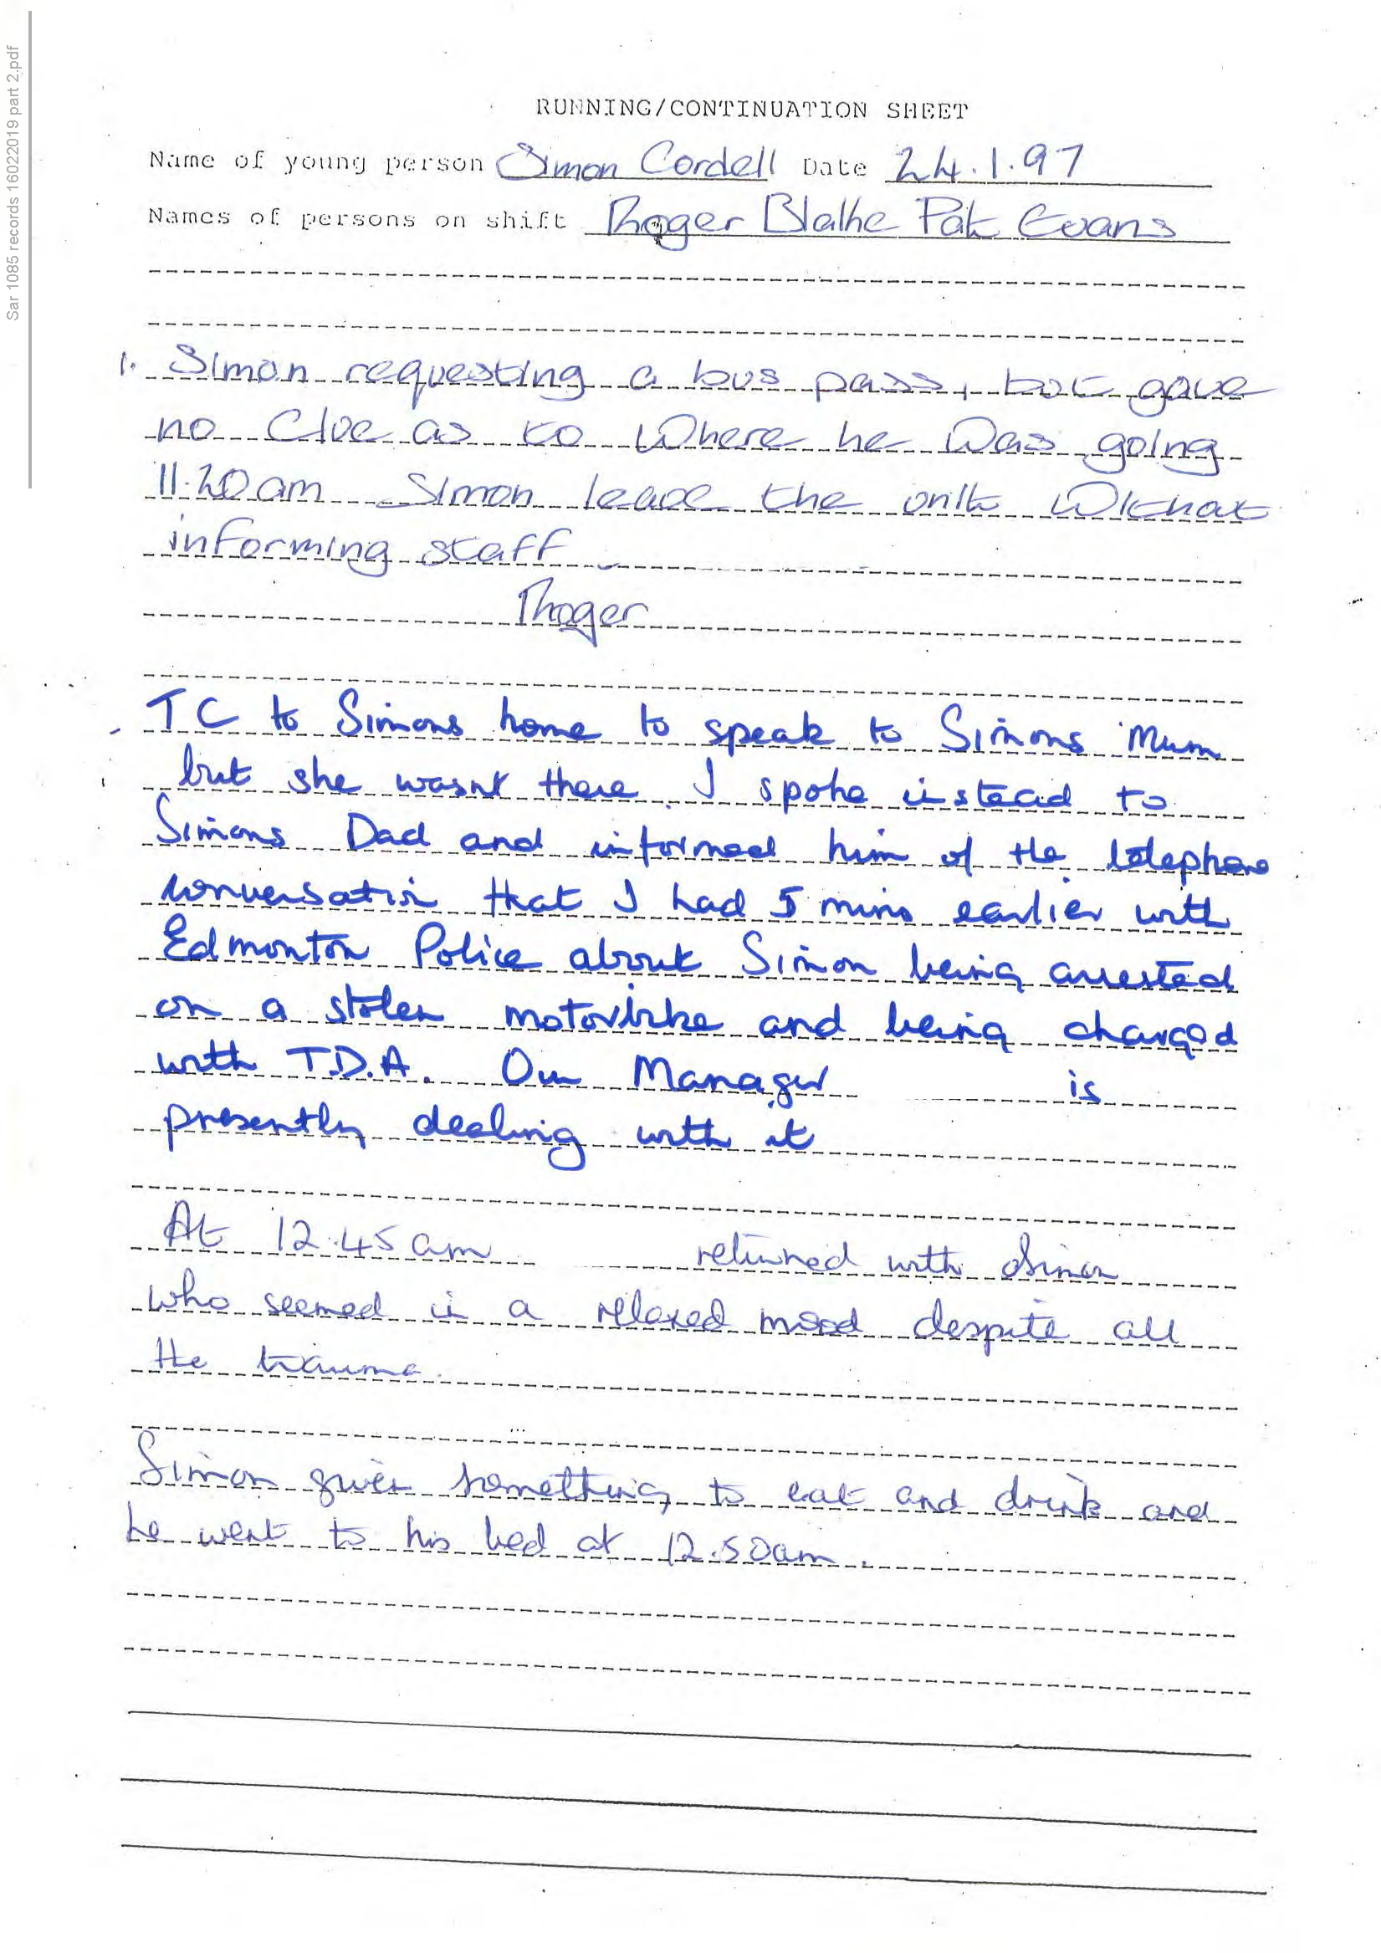 Sar 1085 records 16022019 part 2.pdf
RUNNING/CONTINUATION SHEET
Name of young person Simon Cordell Date 24.1.97
Names of persons on shift Rhoger Blathe Pat Evans
1. Simon requesting a bus pass, but gave
no Clue as to Where he Was going
11.20am Simon leave the unit Without
informing staff
Rhoger
TC to Simons home to speak to Simons Mum
but she wasnt there. I spoke instead to
Simons Dad and informed him of the telephone
conversation that I had 5 mins earlier with
Edmonton Police about Simon being arrested
on a stolen motorbike and being charged
with T.D.A. Our Manager is
presently dealing with it
At 12.45am returned with Simon
who seemed in a relaxed mood despite all
the trauma.
Simon given something to eat and drink and
he went to his bed at 12.50am.